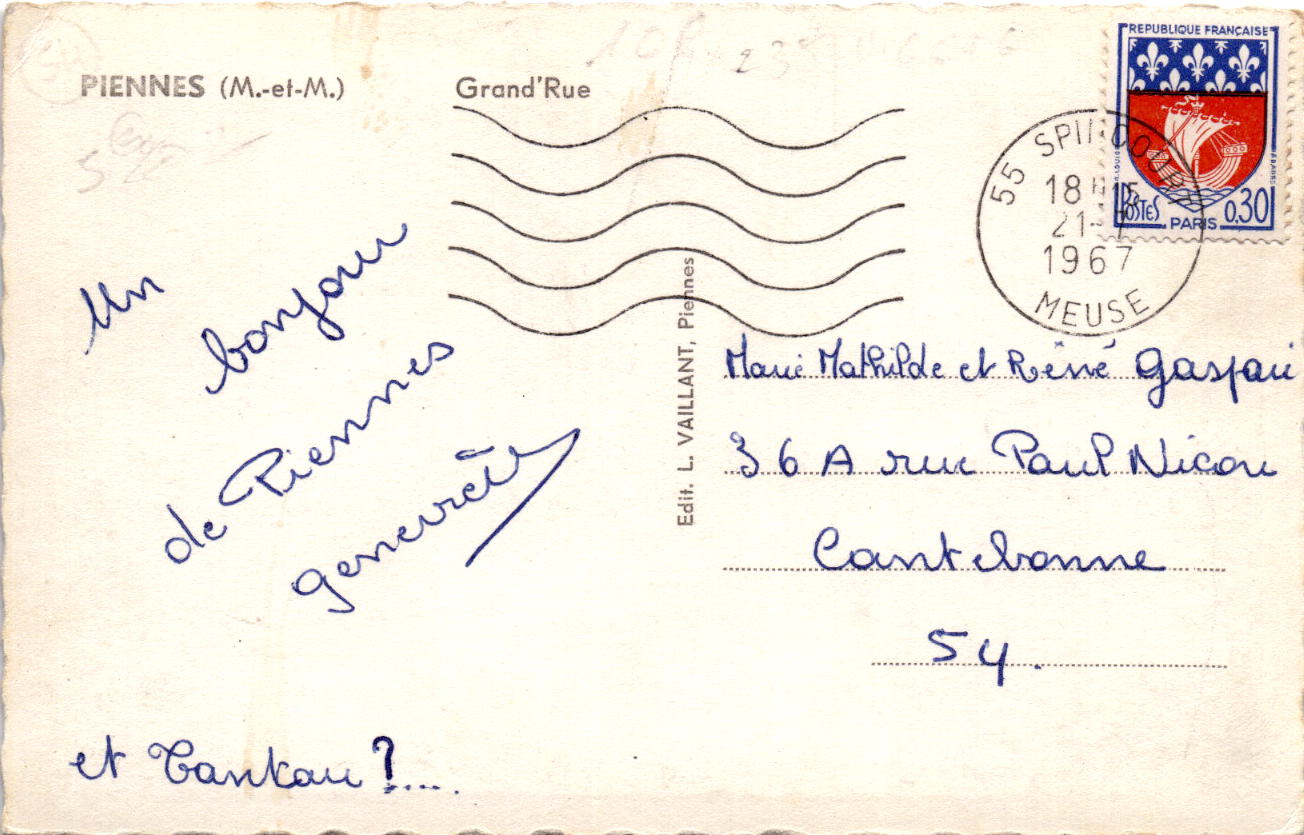 PIENNES (M.-et-M.)
Grand'Rue
REPUBLIQUE FRANÇAISE
POSTES PARIS 0,30
55 SPINCOURT
18 H 15
21-
1967
MEUSE
Un
bonjour
de Piennes
Edit. L. VAILLANT, Piennes
Marie Mathilde et Réné Gaspari
36 A rue Paul Nicou
Cantebonne
54.
et Tankau ?....